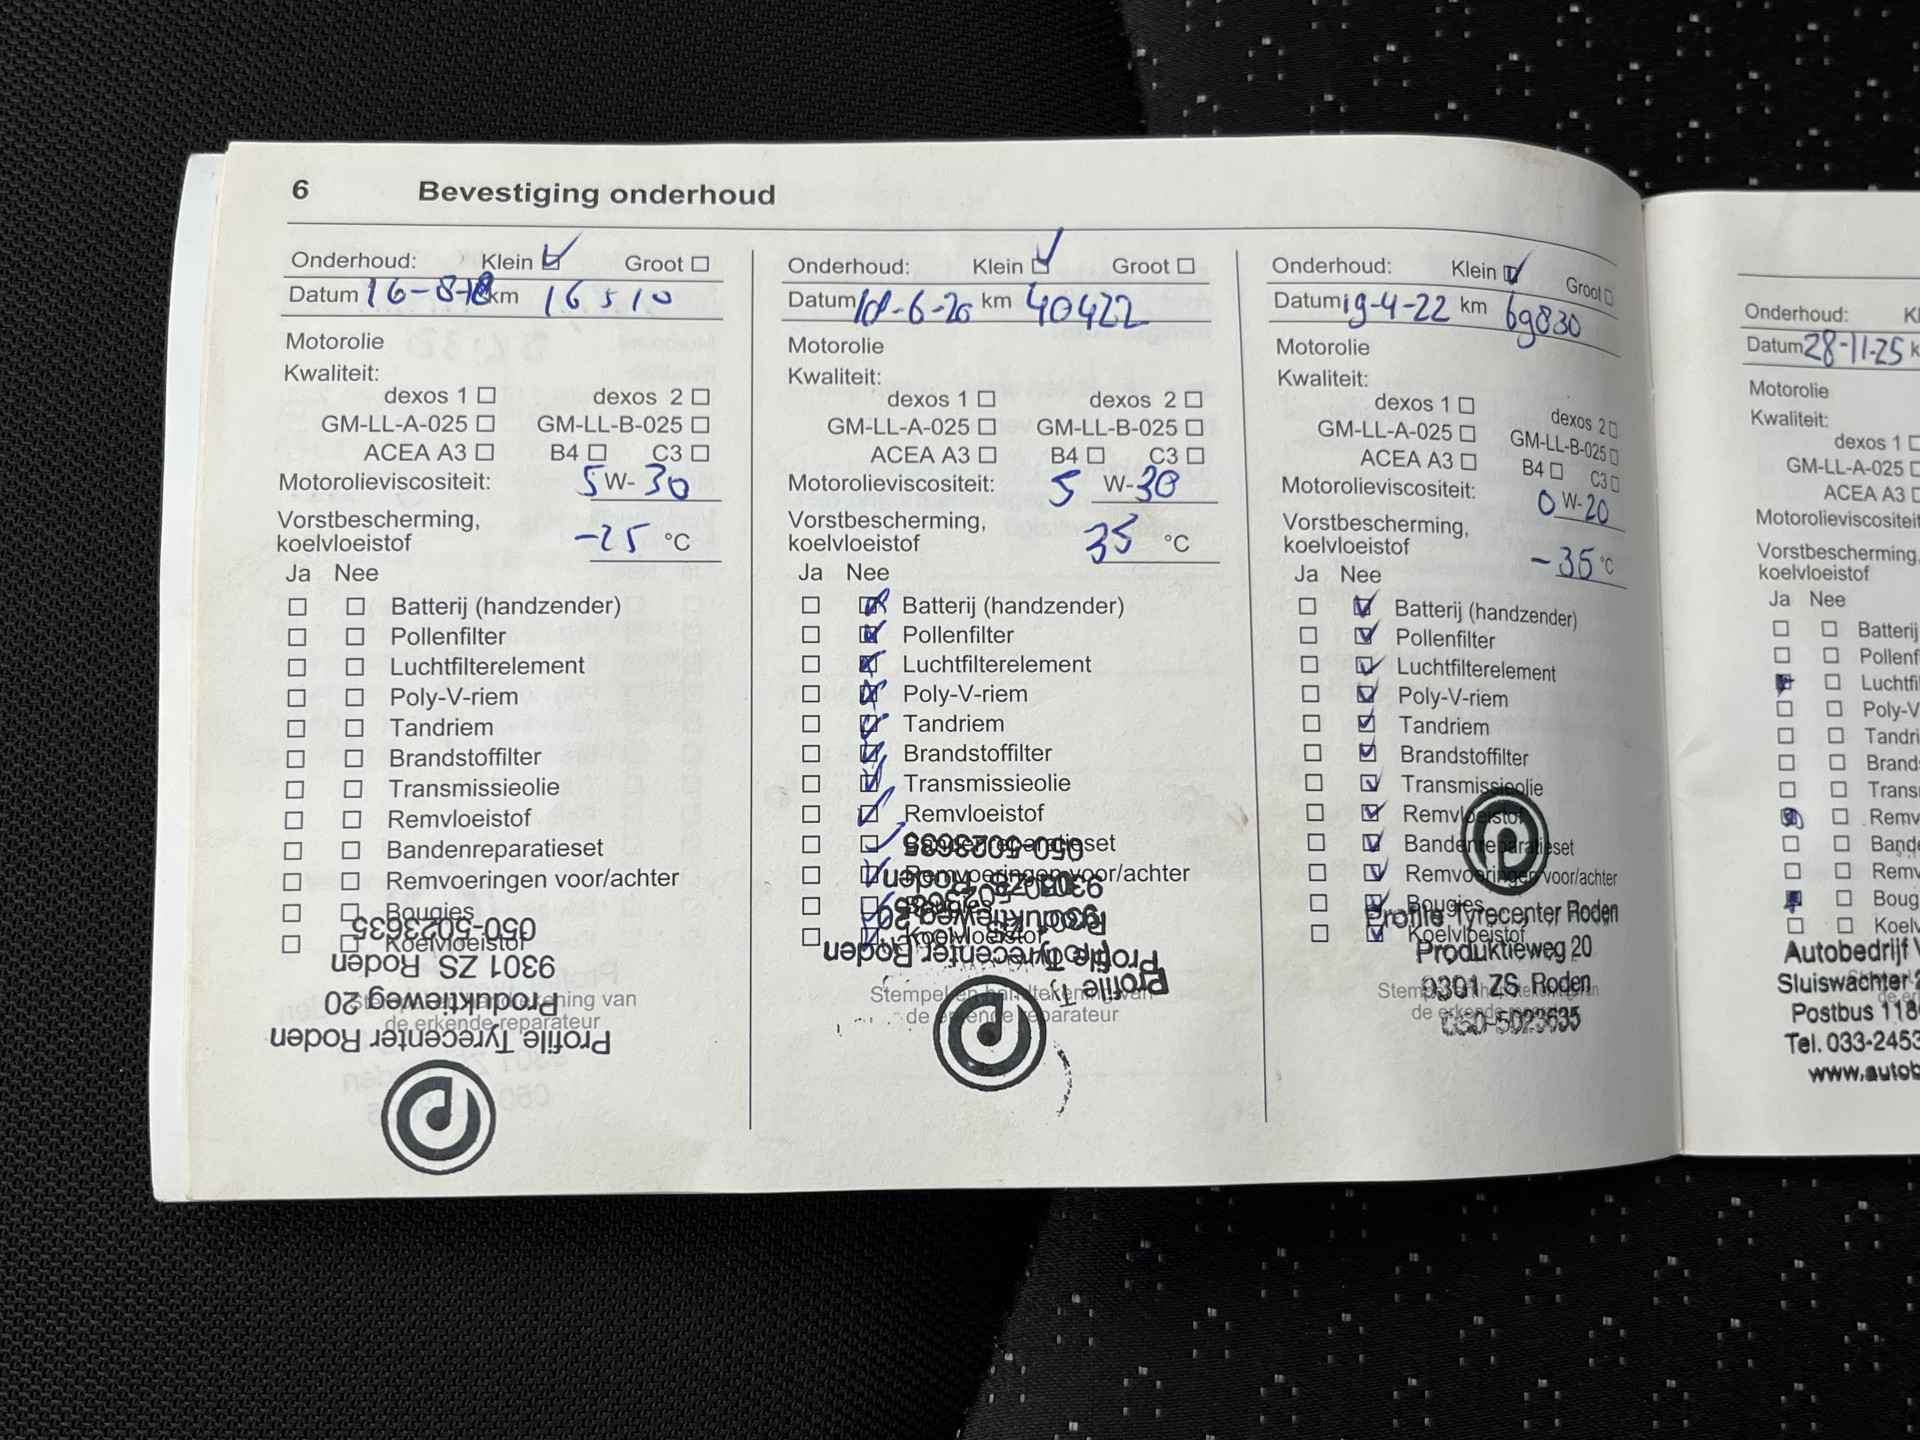 6 Bevestiging onderhoud
Onderhoud: Klein Groot
Datum 16-8-18 km 16510
Motorolie
Kwaliteit:
dexos 1 dexos 2
GM-LL-A-025 GM-LL-B-025
ACEA A3 B4 C3
Motorolieviscositeit: 5 W- 30
Vorstbescherming,
koelvloeistof -25 °C
Ja Nee
Batterij (handzender)
Pollenfilter
Luchtfilterelement
Poly-V-riem
Tandriem
Brandstoffilter
Transmissieolie
Remvloeistof
Bandenreparatieset
Remvoeringen voor/achter
Bougies
Koelvloeistof
Stempel en handtekening van
de erkende reparateur
Profile Tyrecenter Roden
Produktieweg 20
9301 ZS Roden
050-5023635
Onderhoud: Klein Groot
Datum -6-20 km 40422
Motorolie
Kwaliteit:
dexos 1 dexos 2
GM-LL-A-025 GM-LL-B-025
ACEA A3 B4 C3
Motorolieviscositeit: 5 W-30
Vorstbescherming,
koelvloeistof 35 °C
Ja Nee
Batterij (handzender)
Pollenfilter
Luchtfilterelement
Poly-V-riem
Tandriem
Brandstoffilter
Transmissieolie
Remvloeistof
Bandenreparatieset
Remvoeringen voor/achter
Koelvloeistof
Stempel en handtekening van
de erkende reparateur
Profile Tyrecenter Roden
Produktieweg 20
050-5023635
Onderhoud: Klein Groot
Datum 19-4-22 km 69830
Motorolie
Kwaliteit:
dexos 1 dexos 2
GM-LL-A-025 GM-LL-B-025
ACEA A3 B4 C3
Motorolieviscositeit: 0 W-20
Vorstbescherming,
koelvloeistof -35 °C
Ja Nee
Batterij (handzender)
Pollenfilter
Luchtfilterelement
Poly-V-riem
Tandriem
Brandstoffilter
Transmissieolie
Remvloeistof
Bandenreparatieset
Remvoeringen voor/achter
Bougies
Koelvloeistof
Profile Tyrecenter Roden
Produktieweg 20
9301 ZS Roden
050-5023635
Onderhoud: Kl
Datum 28-11-25 k
Motorolie
Kwaliteit:
dexos 1
GM-LL-A-025
ACEA A3
Motorolieviscositeit
Vorstbescherming,
koelvloeistof
Ja Nee
Batterij
Pollenf
Luchtfil
Poly-V
Tandri
Brands
Trans
Remv
Bande
Remv
Boug
Koelv
Autobedrijf
Sluiswachter 2
Postbus 118
Tel. 033-2453
www.autob